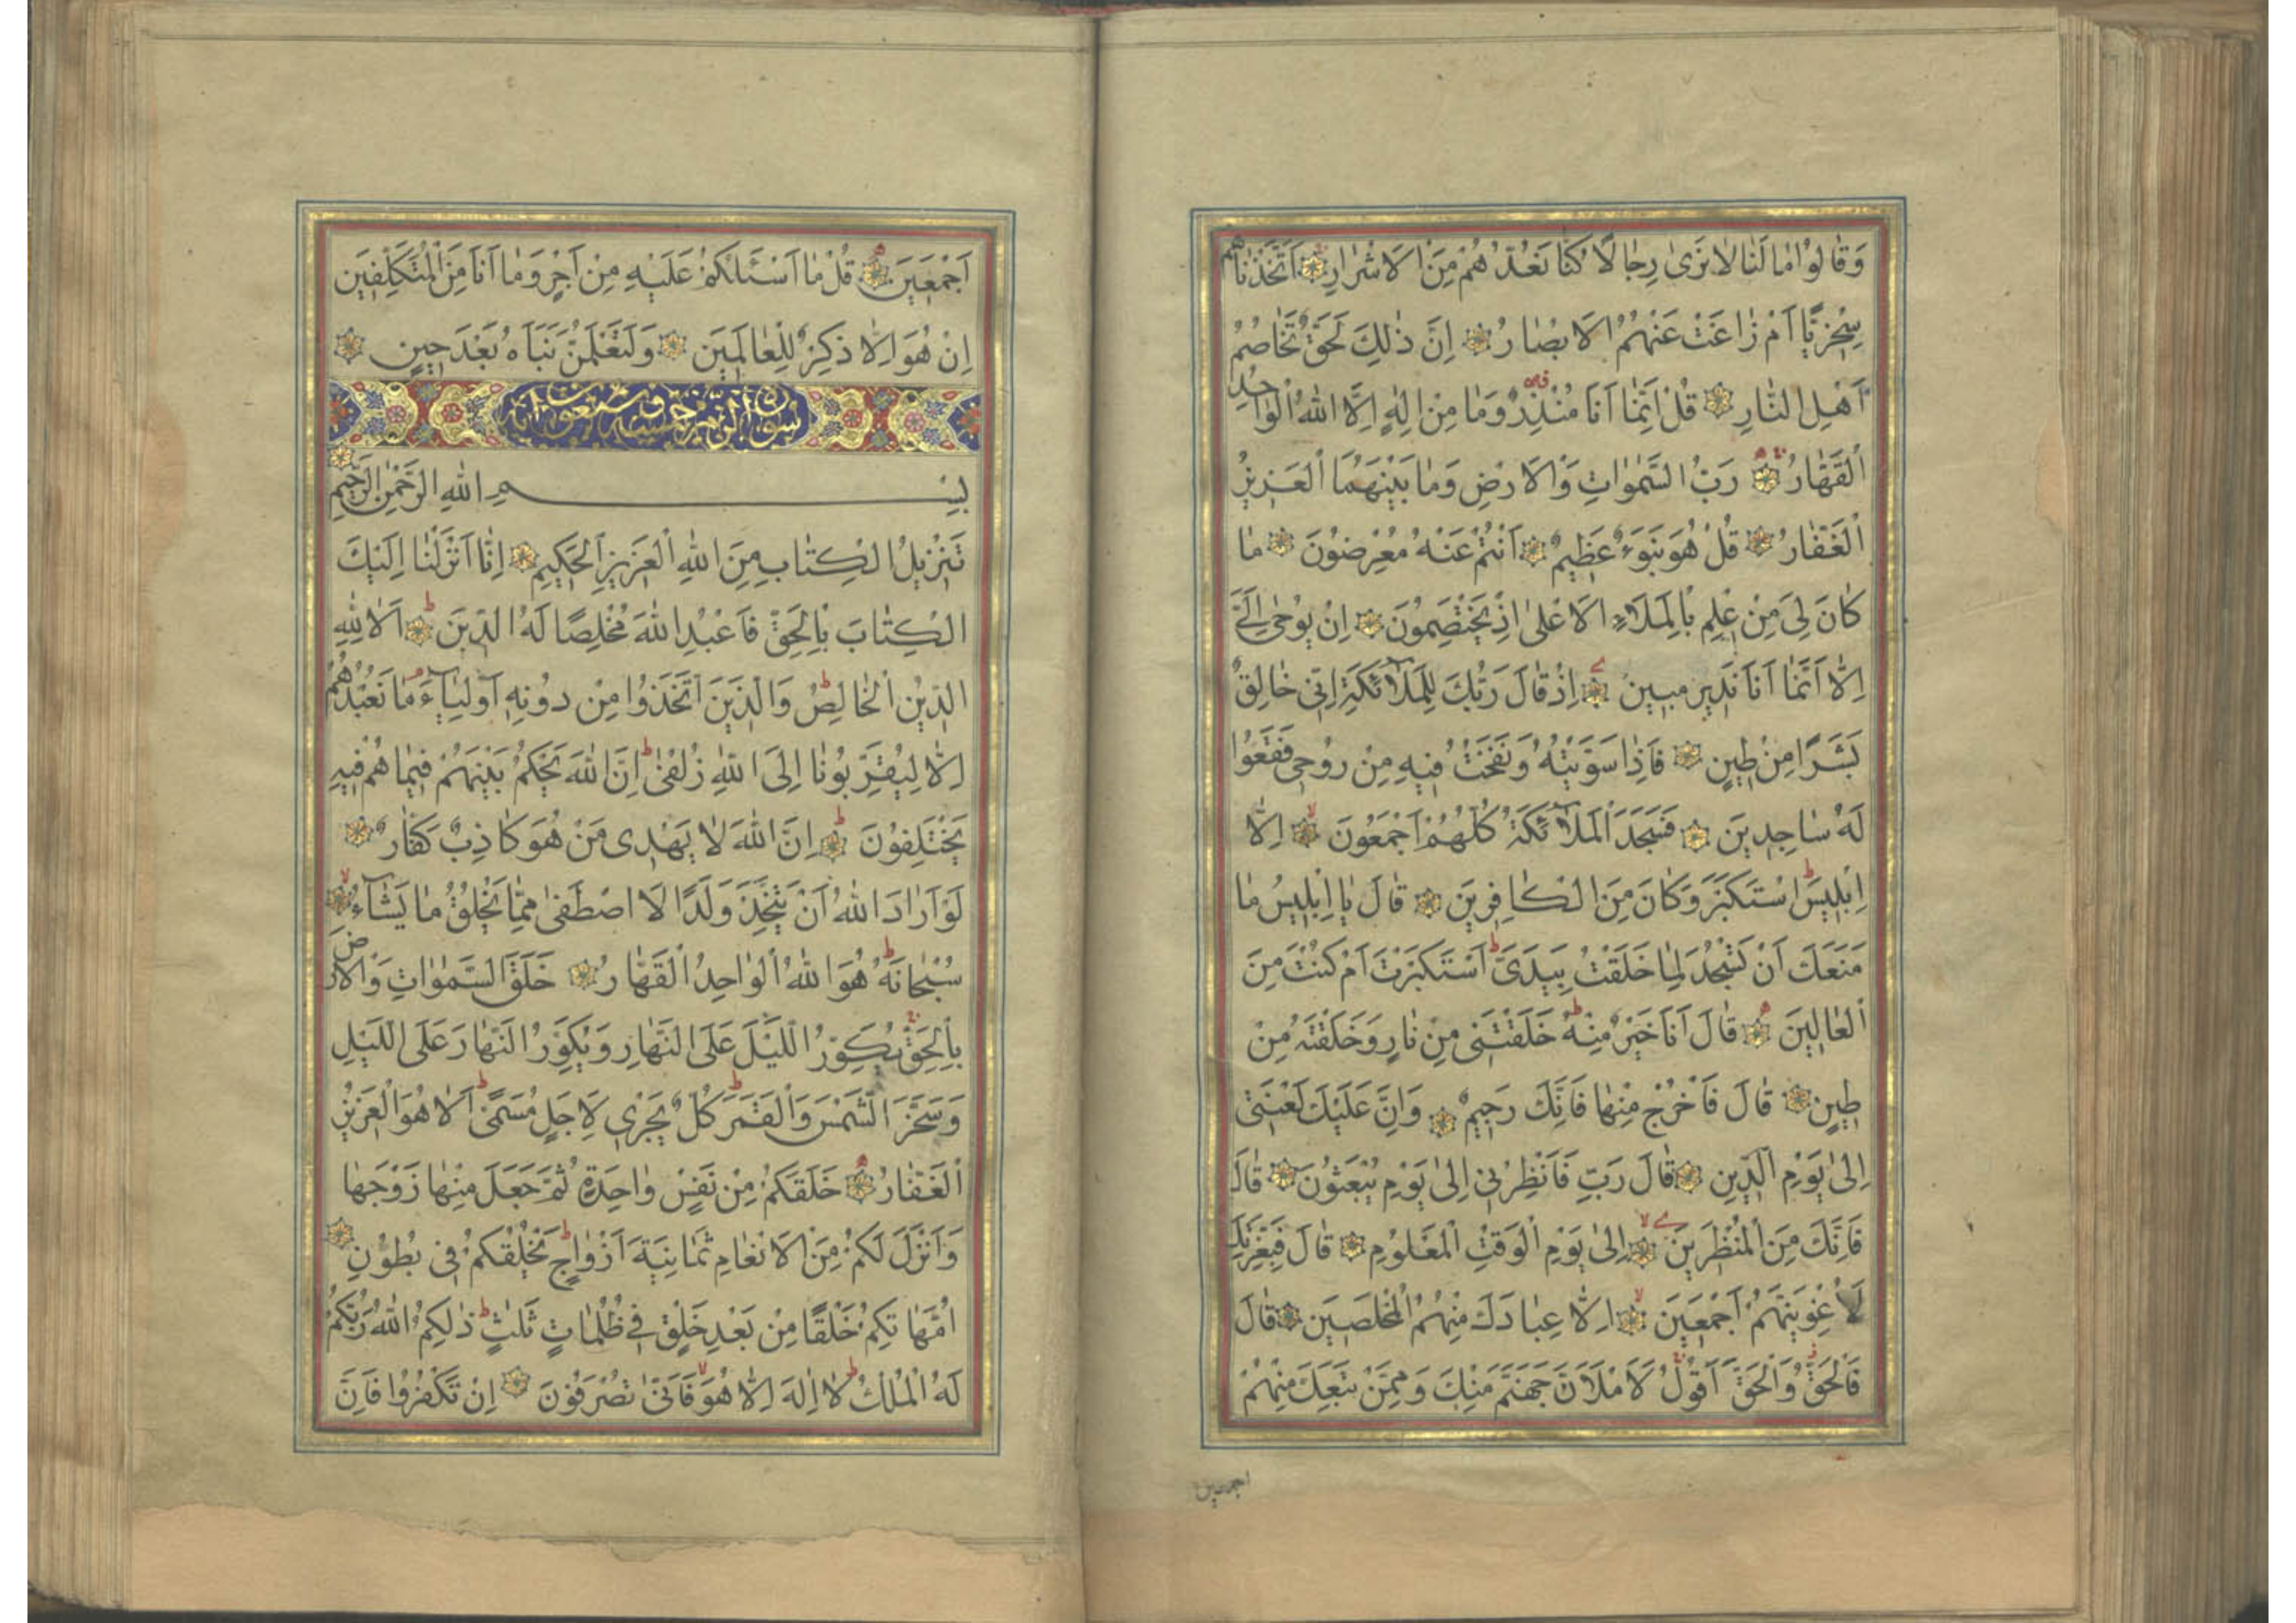 وَقَالُوا مَا لَنَا لَا نَرَىٰ رِجَالًا كُنَّا نَعُدُّهُمْ مِنَ الْأَشْرَارِ أَتَّخَذْنَاهُمْ
سِخْرِيًّا أَمْ زَاغَتْ عَنْهُمُ الْأَبْصَارُ إِنَّ ذَٰلِكَ لَحَقٌّ تَخَاصُمُ
أَهْلِ النَّارِ قُلْ إِنَّمَا أَنَا مُنْذِرٌ وَمَا مِنْ إِلَٰهٍ إِلَّا اللَّهُ الْوَاحِدُ
الْقَهَّارُ رَبُّ السَّمٰوَاتِ وَالْأَرْضِ وَمَا بَيْنَهُمَا الْعَزِيزُ
الْغَفَّارُ قُلْ هُوَ نَبَؤٌ عَظِيمٌ أَنْتُمْ عَنْهُ مُعْرِضُونَ مَا
كَانَ لِيَ مِنْ عِلْمٍ بِالْمَلَإِ الْأَعْلَىٰ إِذْ يَخْتَصِمُونَ إِنْ يُوحَىٰ إِلَيَّ
إِلَّا أَنَّمَا أَنَا نَذِيرٌ مُبِينٌ إِذْ قَالَ رَبُّكَ لِلْمَلَائِكَةِ إِنِّي خَالِقٌ
بَشَرًا مِنْ طِينٍ فَإِذَا سَوَّيْتُهُ وَنَفَخْتُ فِيهِ مِنْ رُوحِي فَقَعُوا
لَهُ سَاجِدِينَ فَسَجَدَ الْمَلَائِكَةُ كُلُّهُمْ أَجْمَعُونَ إِلَّا
إِبْلِيسَ اسْتَكْبَرَ وَكَانَ مِنَ الْكَافِرِينَ قَالَ يَا إِبْلِيسُ مَا
مَنَعَكَ أَنْ تَسْجُدَ لِمَا خَلَقْتُ بِيَدَيَّ أَسْتَكْبَرْتَ أَمْ كُنْتَ مِنَ
الْعَالِينَ قَالَ أَنَا خَيْرٌ مِنْهُ خَلَقْتَنِي مِنْ نَارٍ وَخَلَقْتَهُ مِنْ
طِينٍ قَالَ فَاخْرُجْ مِنْهَا فَإِنَّكَ رَجِيمٌ وَإِنَّ عَلَيْكَ لَعْنَتِي
إِلَىٰ يَوْمِ الدِّينِ قَالَ رَبِّ فَأَنْظِرْنِي إِلَىٰ يَوْمِ يُبْعَثُونَ قَالَ
فَإِنَّكَ مِنَ الْمُنْظَرِينَ إِلَىٰ يَوْمِ الْوَقْتِ الْمَعْلُومِ قَالَ فَبِعِزَّتِكَ
لَأُغْوِيَنَّهُمْ أَجْمَعِينَ إِلَّا عِبَادَكَ مِنْهُمُ الْمُخْلَصِينَ قَالَ
فَالْحَقُّ وَالْحَقَّ أَقُولُ لَأَمْلَأَنَّ جَهَنَّمَ مِنْكَ وَمِمَّنْ تَبِعَكَ مِنْهُمْ
اجمعين
أَجْمَعِينَ قُلْ مَا أَسْئَلُكُمْ عَلَيْهِ مِنْ أَجْرٍ وَمَا أَنَا مِنَ الْمُتَكَلِّفِينَ
إِنْ هُوَ إِلَّا ذِكْرٌ لِلْعَالَمِينَ وَلَتَعْلَمُنَّ نَبَأَهُ بَعْدَ حِينٍ
سورة الزمر خمس وسبعون آية
بِسْمِ اللَّهِ الرَّحْمٰنِ الرَّحِيمِ
تَنْزِيلُ الْكِتَابِ مِنَ اللَّهِ الْعَزِيزِ الْحَكِيمِ إِنَّا أَنْزَلْنَا إِلَيْكَ
الْكِتَابَ بِالْحَقِّ فَاعْبُدِ اللَّهَ مُخْلِصًا لَهُ الدِّينَ أَلَا لِلَّهِ
الدِّينُ الْخَالِصُ وَالَّذِينَ اتَّخَذُوا مِنْ دُونِهِ أَوْلِيَاءَ مَا نَعْبُدُهُمْ
إِلَّا لِيُقَرِّبُونَا إِلَى اللَّهِ زُلْفَىٰ إِنَّ اللَّهَ يَحْكُمُ بَيْنَهُمْ فِيمَا هُمْ فِيهِ
يَخْتَلِفُونَ إِنَّ اللَّهَ لَا يَهْدِي مَنْ هُوَ كَاذِبٌ كَفَّارٌ
لَوْ أَرَادَ اللَّهُ أَنْ يَتَّخِذَ وَلَدًا لَاصْطَفَىٰ مِمَّا يَخْلُقُ مَا يَشَاءُ
سُبْحَانَهُ هُوَ اللَّهُ الْوَاحِدُ الْقَهَّارُ خَلَقَ السَّمٰوَاتِ وَالْأَرْضَ
بِالْحَقِّ يُكَوِّرُ اللَّيْلَ عَلَى النَّهَارِ وَيُكَوِّرُ النَّهَارَ عَلَى اللَّيْلِ
وَسَخَّرَ الشَّمْسَ وَالْقَمَرَ كُلٌّ يَجْرِي لِأَجَلٍ مُسَمًّى أَلَا هُوَ الْعَزِيزُ
الْغَفَّارُ خَلَقَكُمْ مِنْ نَفْسٍ وَاحِدَةٍ ثُمَّ جَعَلَ مِنْهَا زَوْجَهَا
وَأَنْزَلَ لَكُمْ مِنَ الْأَنْعَامِ ثَمَانِيَةَ أَزْوَاجٍ يَخْلُقُكُمْ فِي بُطُونِ
أُمَّهَاتِكُمْ خَلْقًا مِنْ بَعْدِ خَلْقٍ فِي ظُلُمَاتٍ ثَلٰثٍ ذَٰلِكُمُ اللَّهُ رَبُّكُمْ
لَهُ الْمُلْكُ لَا إِلَٰهَ إِلَّا هُوَ فَأَنَّىٰ تُصْرَفُونَ إِنْ تَكْفُرُوا فَإِنَّ